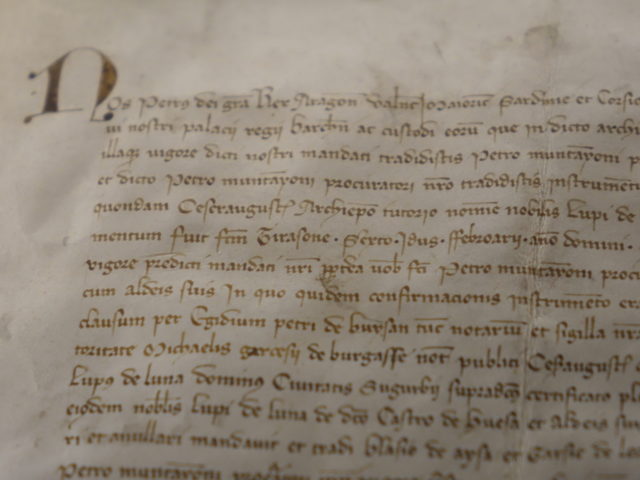 Nos Petrus dei gra Rex Aragon Valenc Maioric Sardinie et Corsice
ui nostri palacii regii barchn ac custodi eorum que in dicto archi
illaque vigore dicti nostri mandati tradidistis Petro muntaroni p
et dicto Petro muntaroni procuratori nro tradidistis instrument
quondam Cesaraugust Archiepo tutorio nomine nobilis Lupi de
mentum fuit fcm Tirasone Sexto Idus ffebroarii anno domini
vigore predicti mandati nri vob Petro muntaroni proc
cum aldeis suis In quo quidem confirmacionis instrumeto
clausum per Egidium petri de buysan tuc notariu et sigilla nra
toritate Michaelis garcesii de burgasse not publici Cesaraugust
Lupus de luna dominus Civitatis Sugurbii supradcm certificato
eiusdem nobilis lupi de luna de dco Castro de huesa et Aldeis sui
ri et anullari mandavit et tradi blasio de aysa et Garsie de lo
Petro muntaroni